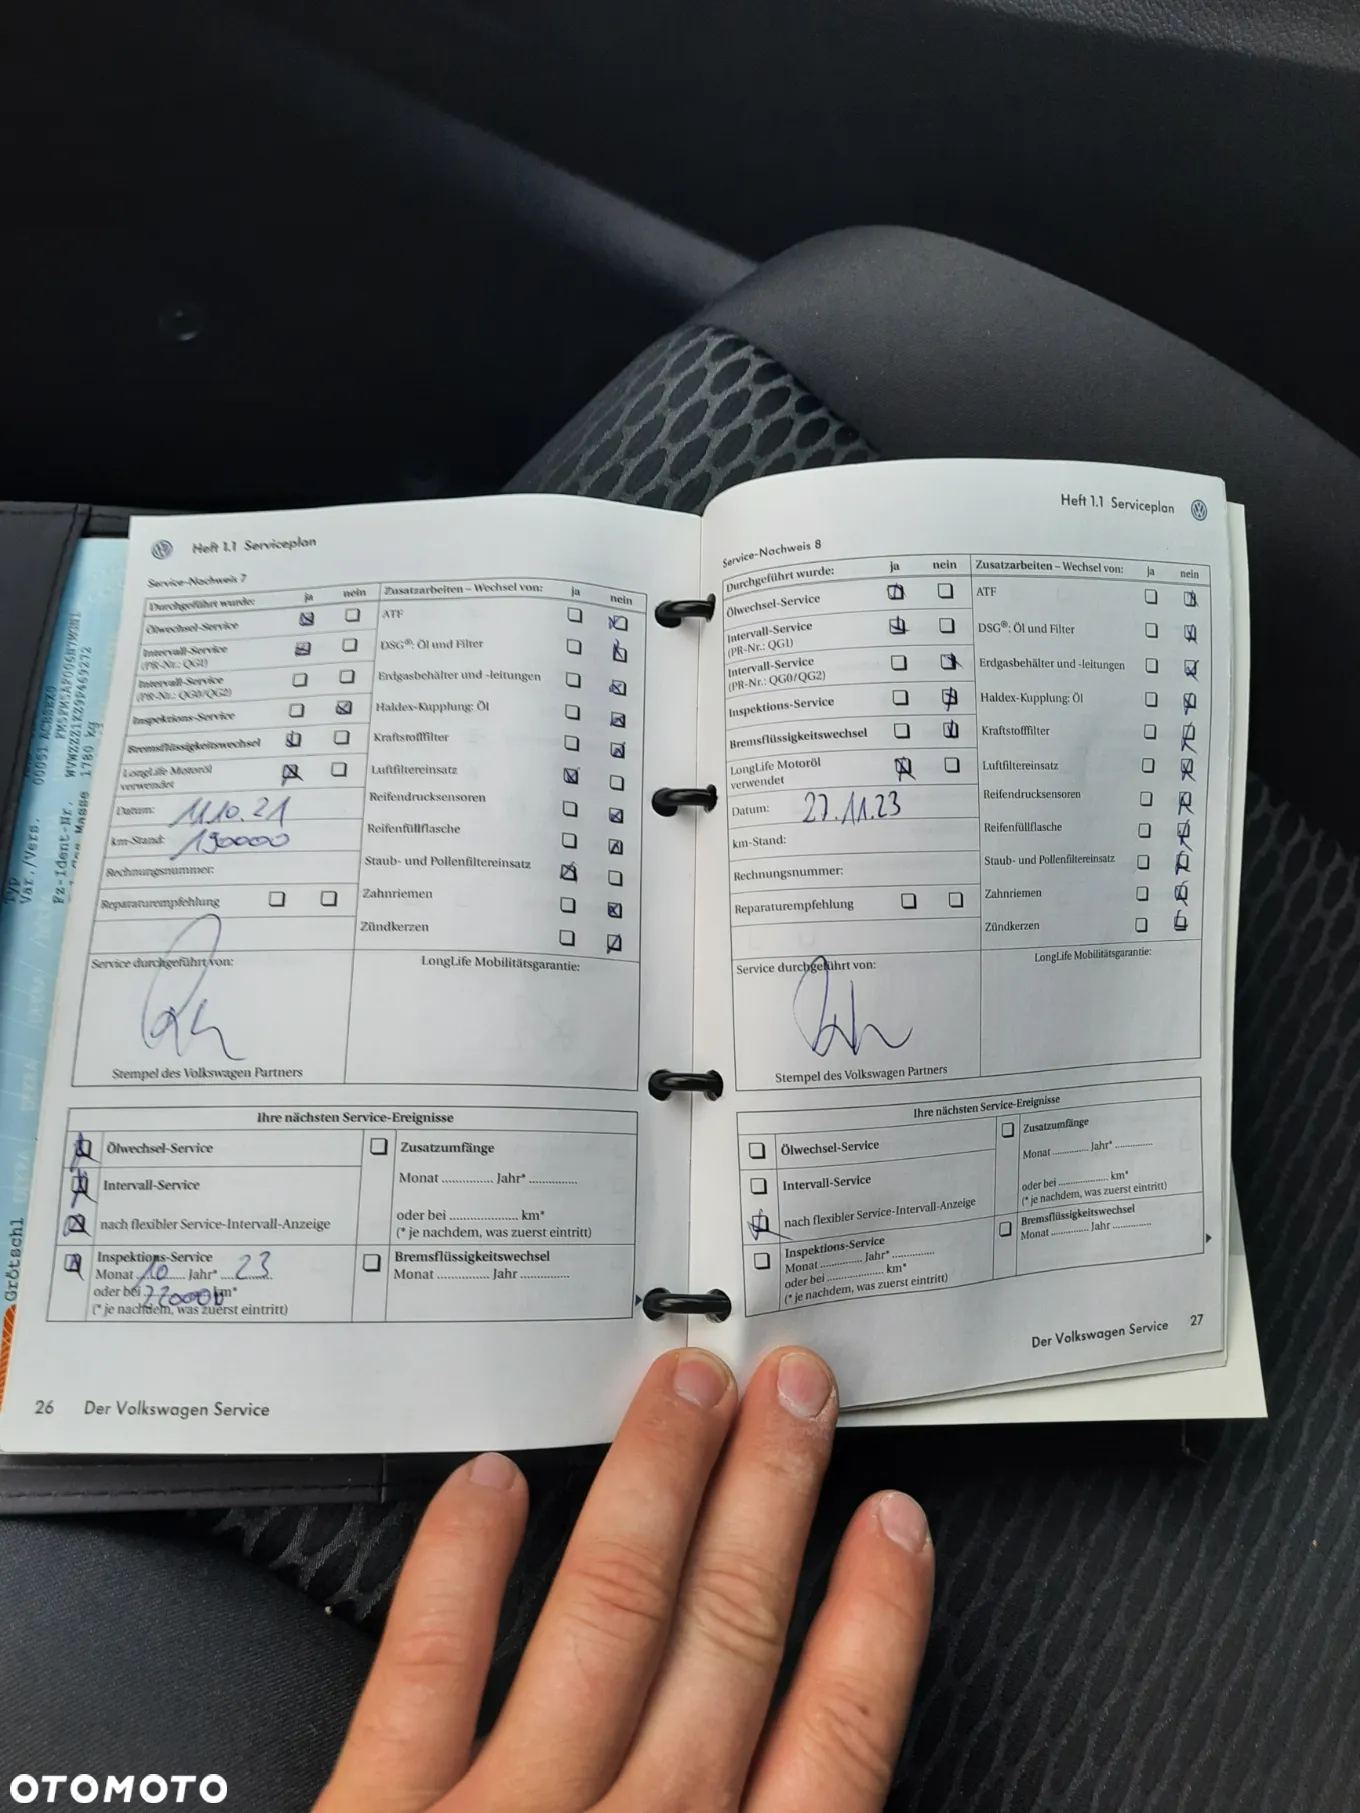 Heft 1.1 Serviceplan
Service-Nachweis 7
Durchgeführt wurde: ja nein
Ölwechsel-Service
Intervall-Service
(PR-Nr.: QG1)
Intervall-Service
(PR-Nr.: QG0/QG2)
Inspektions-Service
Bremsflüssigkeitswechsel
LongLife Motoröl
verwendet
Datum: 11.10.21
km-Stand: 190000
Rechnungsnummer:
Reparaturempfehlung
Zusatzarbeiten – Wechsel von: ja nein
ATF
DSG®: Öl und Filter
Erdgasbehälter und -leitungen
Haldex-Kupplung: Öl
Kraftstofffilter
Luftfiltereinsatz
Reifendrucksensoren
Reifenfüllflasche
Staub- und Pollenfiltereinsatz
Zahnriemen
Zündkerzen
Service durchgeführt von:
Stempel des Volkswagen Partners
LongLife Mobilitätsgarantie:
Ihre nächsten Service-Ereignisse
Ölwechsel-Service
Intervall-Service
nach flexibler Service-Intervall-Anzeige
Inspektions-Service
Monat 10 Jahr* 23
oder bei 220000 km*
(* je nachdem, was zuerst eintritt)
Zusatzumfänge
Monat .............. Jahr* ..............
oder bei .................... km*
(* je nachdem, was zuerst eintritt)
Bremsflüssigkeitswechsel
Monat .............. Jahr ..............
26 Der Volkswagen Service
Heft 1.1 Serviceplan
Service-Nachweis 8
Durchgeführt wurde: ja nein
Ölwechsel-Service
Intervall-Service
(PR-Nr.: QG1)
Intervall-Service
(PR-Nr.: QG0/QG2)
Inspektions-Service
Bremsflüssigkeitswechsel
LongLife Motoröl
verwendet
Datum: 27.11.23
km-Stand:
Rechnungsnummer:
Reparaturempfehlung
Zusatzarbeiten – Wechsel von: ja nein
ATF
DSG®: Öl und Filter
Erdgasbehälter und -leitungen
Haldex-Kupplung: Öl
Kraftstofffilter
Luftfiltereinsatz
Reifendrucksensoren
Reifenfüllflasche
Staub- und Pollenfiltereinsatz
Zahnriemen
Zündkerzen
Service durchgeführt von:
Stempel des Volkswagen Partners
LongLife Mobilitätsgarantie:
Ihre nächsten Service-Ereignisse
Ölwechsel-Service
Intervall-Service
nach flexibler Service-Intervall-Anzeige
Inspektions-Service
Monat .............. Jahr* ..............
oder bei .................... km*
(* je nachdem, was zuerst eintritt)
Zusatzumfänge
Monat .............. Jahr* ..............
oder bei .................... km*
(* je nachdem, was zuerst eintritt)
Bremsflüssigkeitswechsel
Monat .............. Jahr ..............
Der Volkswagen Service 27
Typ
Var./Vers.
Fz-Ident-Nr.
1780 kg
Grötschl
OTOMOTO